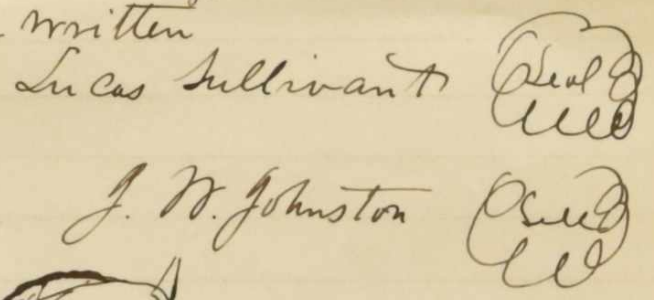 written
Lucas Sullivant Seal
J. W. Johnston Seal